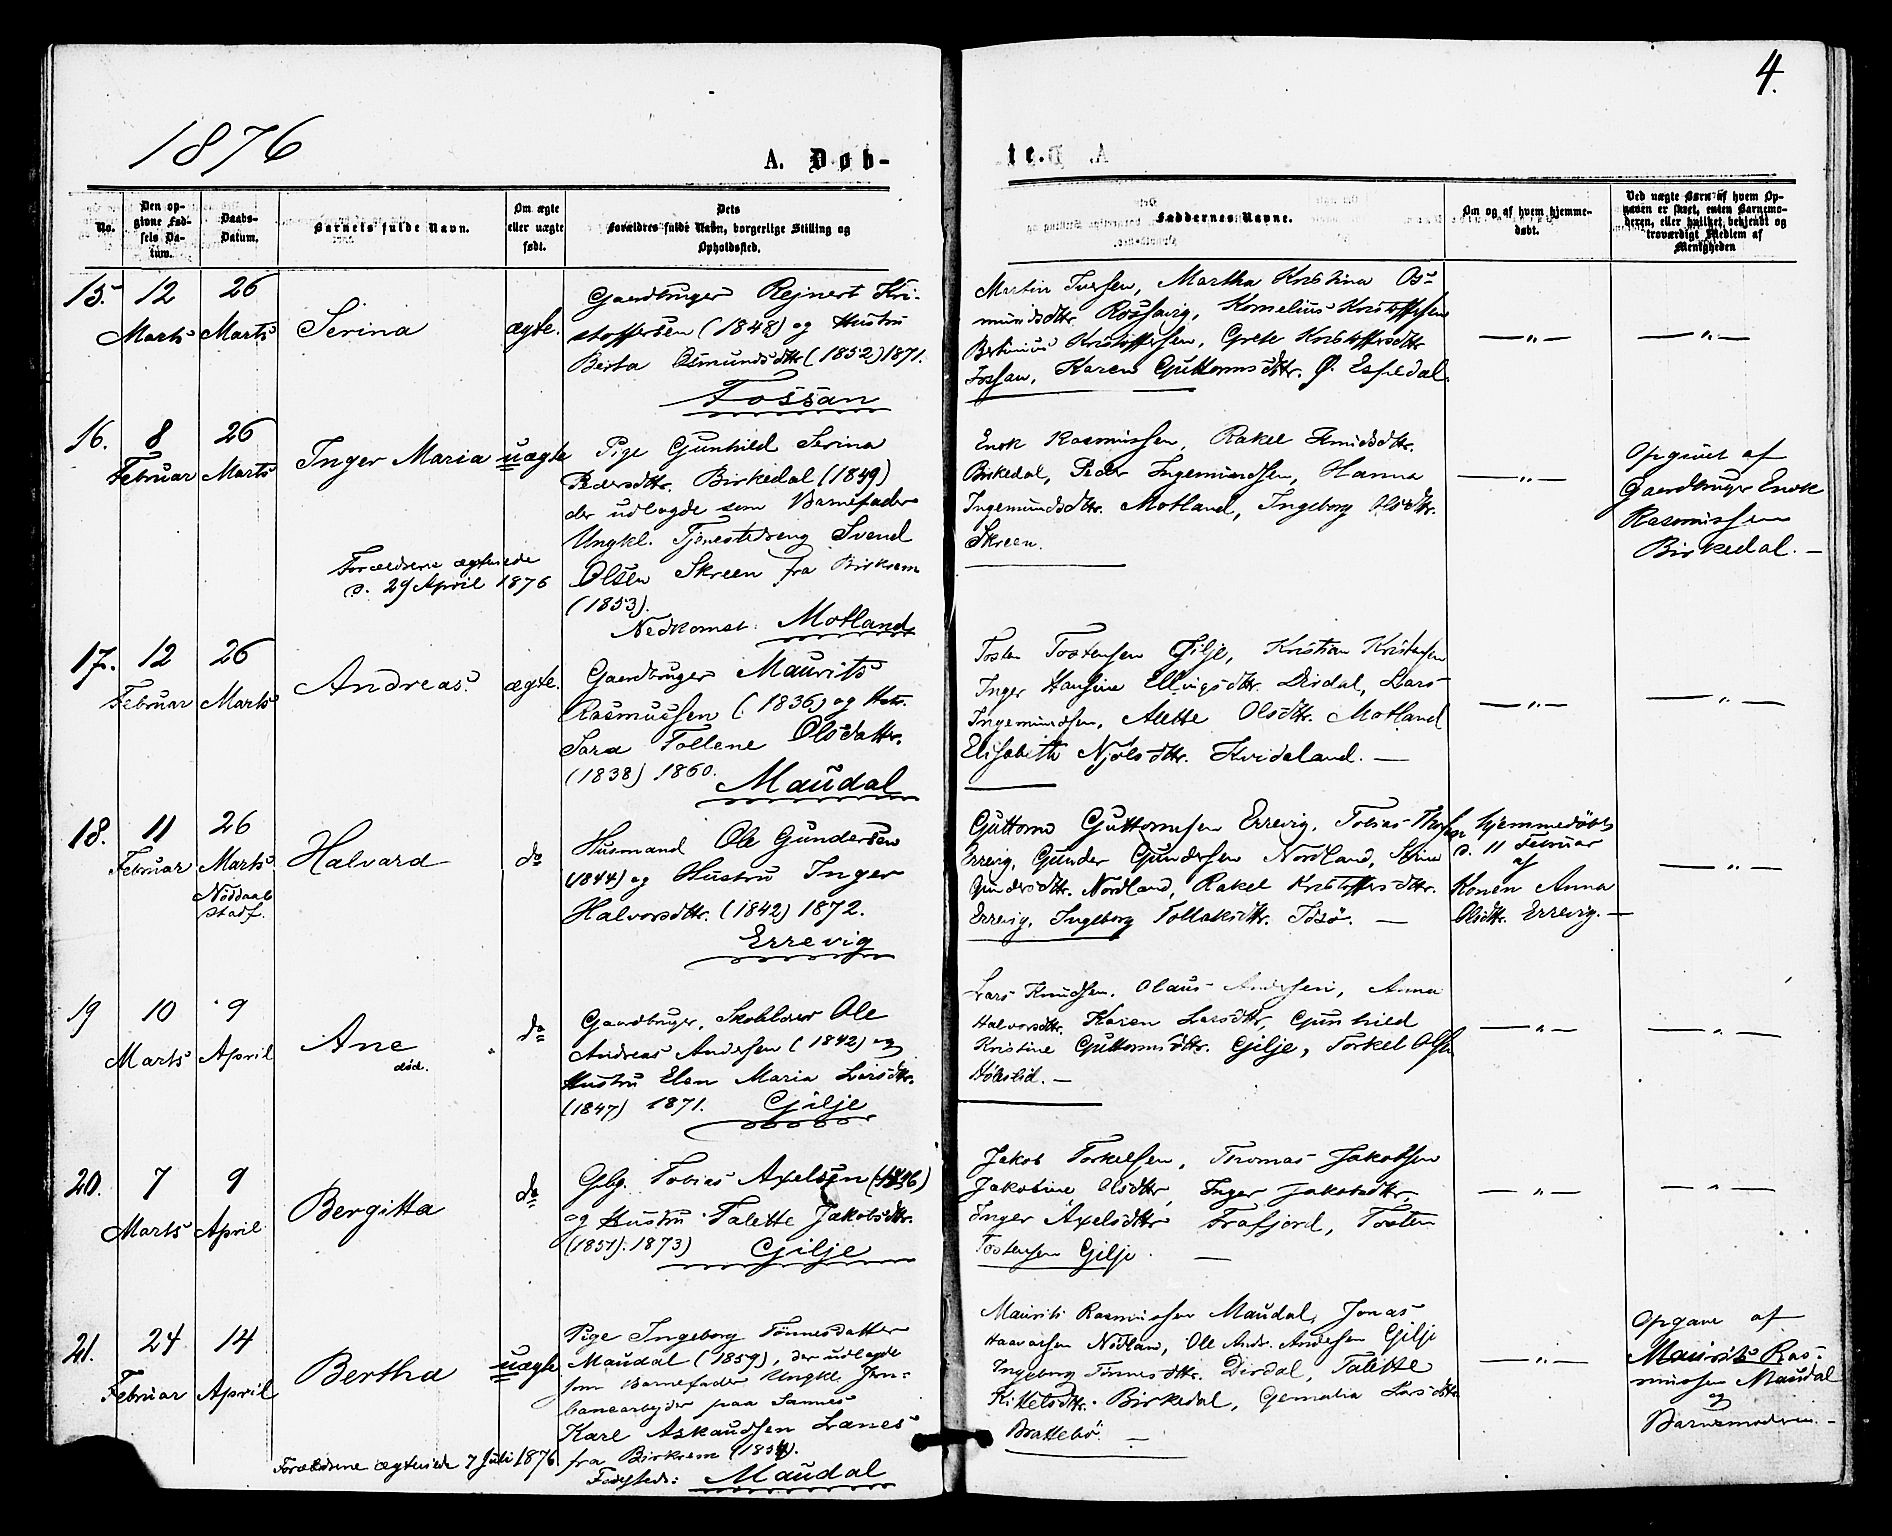 4.
1876
A. Døb-
te.
No.
Den op-
givne Fød-
sels Da-
tum.
Daabs-
Datum.
Barnets fulde Navn.
Om ægte
eller uægte
født.
Dets
Forældres fulde Navn, borgerlige Stilling og
Opholdssted.
Faddernes Navne.
Om og af hvem hjemme-
døbt.
Ved uægte Børn af hvem Op-
gaven er skeet, enten Barnemo-
deren, eller hvilket bekjendt og
troværdigt Medlem af
Menigheden
15. 12 Marts
26 Marts
Serina
ægte.
Gaardbruger Rejnert Kri-
stoffersen (1848) og Hustru
Berta Osmundsdtr (1852) 1871.
Fossan
Martin Iversen, Martha Kristina Os-
mundsdtr. Rossavig, Kornelius Kristoffersen
Bertinius Kristoffersen, Grete Kristoffersdtr
Fossan, Karen Guttormsdtr. Ø. Espedal.
— „ —
— „ —
16. 8 Februar
26 Marts
Inger Maria
uægte
Pige Gunhild Serina
Pedersdtr. Birkedal (1849)
der udlagde som Barnefader
Ungkl. Tjenestedreng Svend
Olsen Skreen fra Birkrem
(1853).
Nedkomst: Motland
Forældrene ægteviede
d. 29 April 1876
Enok Rasmussen, Rakel
Birkedal, Peder Ingemundsen, Hanna
Ingemundsdtr. Motland, Ingeborg Olsdtr.
Skreen.
— „ —
Opgivet af
Gaardbruger Enok
Rasmussen
Birkedal. —
17. 12 Februar
26 Marts
Andreas.
ægte.
Gaardbruger Maurits
Rasmussen (1836) og Hstr.
Sara Tollene Olsdattr.
(1838) 1860.
Maudal
Tosten Tostensen Gilje, Kristian Kristensen
Inger Hansine Ellingsdtr. Dirdal, Lars
Ingemundsen, Alette Olsdtr. Motland
Elisabeth Njølsdtr. Kvideland. —
— „ —
— „ —
18. 11 Februar
26 Marts
Nøddaab
stadf.
Halvard
do
Husmand Ole Gundersen
(1844) og Hustru Inger
Halvorsdtr. (1842) 1872.
Errevig
Guttorm Guttormsen Errevig, Tobias
Errevig, Gunder Gundersen Nordland, Serine
Gundersdtr. Nordland, Rakel Kristoffersdtr.
Errevig, Ingeborg Tollaksdtr. —
Hjemmedøbt
d. 11 Februar
af
Konen Anna
Olsdtr. Errevig. —
— „ —
19 10 Marts
9 April
Ane
død.
do
Gaardbruger, Skolelærer Ole
Andreas Andersen (1842) og
Hustru Elen Maria Larsdtr.
(1847) 1871. Gilje
Lars Knudsen, Olaus Andersen, Anna
Halvorsdtr. Karen Larsdtr, Gunhild
Kristine Guttormsdtr. Gilje, Torkel Olsen
— „ —
— „ —
20. 7 Marts
9 April
Bergitta
do
Gbr. Tobias Axelsen (1846)
og Hustru Talette Jakobsdtr.
(1851). 1873) Gilje
Jakob Torkelsen, Thomas Jakobsen
Jakobine Olsdtr, Inger Jakobsdtr,
Inger Axelsdtr Frafjord, Tosten
Tostensen Gilje. —
— „ —
— „ —
21. 24 Februar
14 April
Bertha
uægte
Pige Ingeborg Tønnesdatter
Maudal (1859), der udlagde
som Barnefader Ungkl. Jern-
banearbejder paa Sannes
Karl Askaudsen Lanes
fra Birkrem (1854).
Fødested: Maudal
Forældrene ægteviede 7 Juli 1876
Maurits Rasmussen Maudal, Jonas
Haavarsen Nødland, Ole Andr. Andersen Gilje
Ingeborg Tønnesdtr. Dirdal, Talette
Kittelsdtr. Birkedal, Gemalia Larsdtr
Brattebø. —
— „ —
Opgave af
Maurits Ras-
mussen Maudal
og
Barnemoderen. —